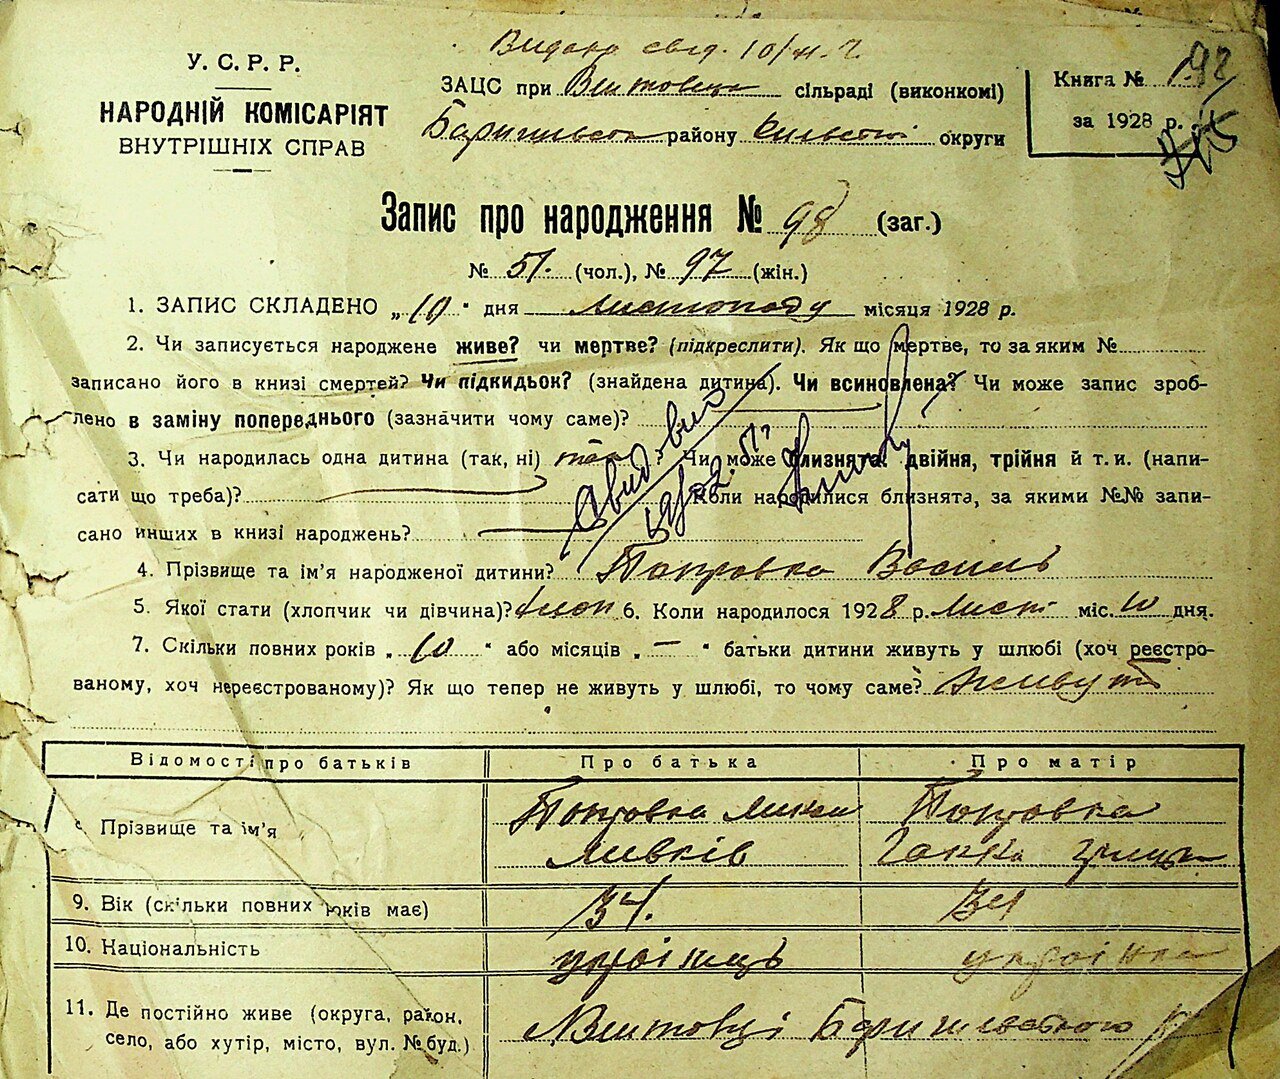 Видано свід. 10/XI. 2
У. С. Р. Р.
НАРОДНІЙ КОМІСАРІЯТ
ВНУТРІШНІХ СПРАВ
ЗАЦС при сільраді (виконкомі)
району округи
Книга № 192
за 1928 р.
Запис про народження № 98 (заг.)
№ 51. (чол.), № 97 (жін.)
1. ЗАПИС СКЛАДЕНО „10" дня листопаду місяця 1928 р.
2. Чи записується народжене живе? чи мертве? (підкреслити). Як що мертве, то за яким №
записано його в книзі смертей? Чи підкидьок? (знайдена дитина). Чи всиновлена? Чи може запис зроб-
лено в заміну попереднього (зазначити чому саме)?
3. Чи народилась одна дитина (так, ні) так Чи може близнята: двійня, трійня й т. и. (напи-
сати що треба)? Коли народилися близнята, за якими №№ запи-
сано инших в книзі народжень?
4. Прізвище та ім'я народженої дитини? Попровка Василь
5. Якої стати (хлопчик чи дівчина)? хлоп 6. Коли народилося 1928 р. Лист міс. 10 дня.
7. Скільки повних років „10" або місяців „—" батьки дитини живуть у шлюбі (хоч реєстро-
ваному, хоч нереєстрованому)? Як що тепер не живуть у шлюбі, то чому саме? живуть
Відомості про батьків Про батька Про матір
Прізвище та ім'я Попровка Попровка
Левків Ганна
9. Вік (скільки повних років має) 34. 34
10. Національність українець українка
11. Де постійно живе (округа, район,
село, або хутір, місто, вул. № буд.) Баришевського